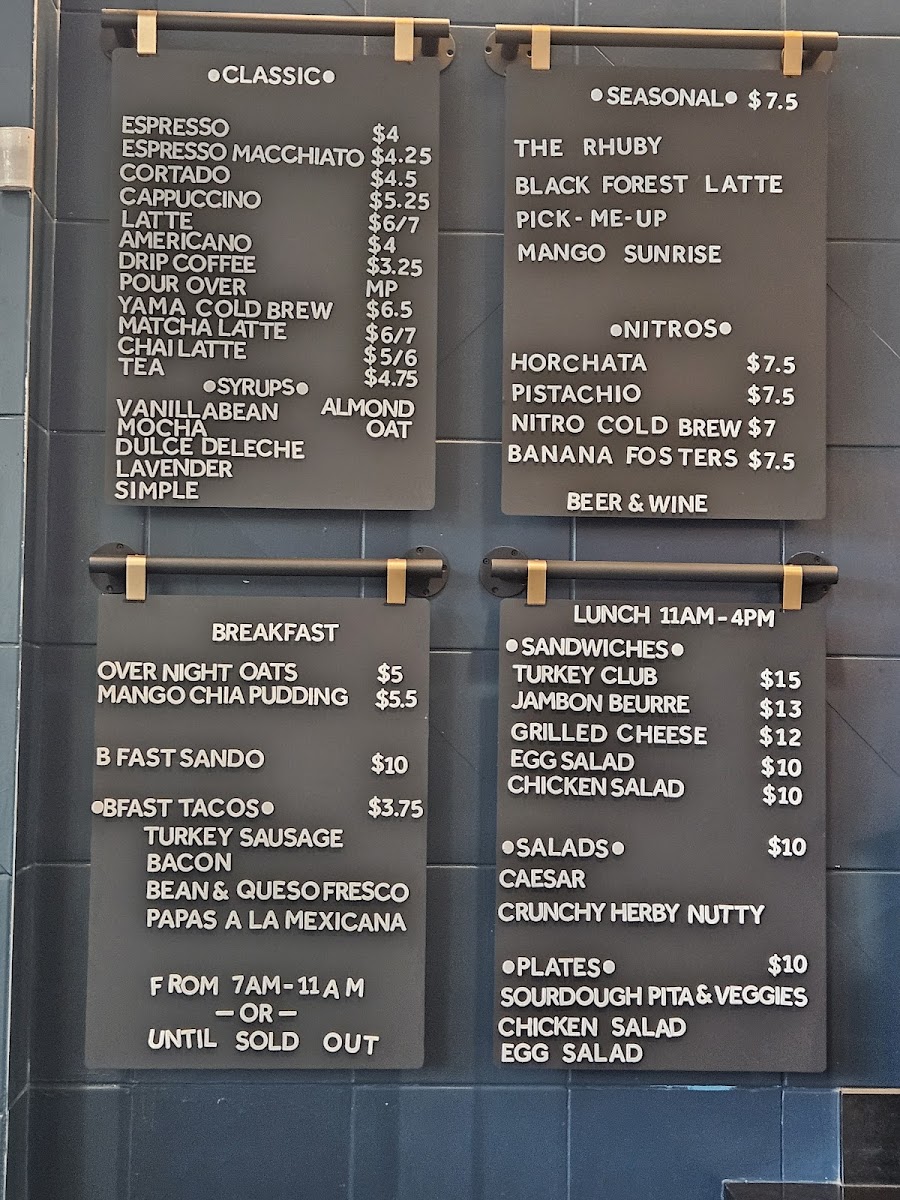 ●CLASSIC●
ESPRESSO $4
ESPRESSO MACCHIATO $4.25
CORTADO $4.5
CAPPUCCINO $5.25
LATTE $6/7
AMERICANO $4
DRIP COFFEE $3.25
POUR OVER MP
YAMA COLD BREW $6.5
MATCHA LATTE $6/7
CHAI LATTE $5/6
TEA $4.75
●SYRUPS●
VANILLABEAN ALMOND
MOCHA OAT
DULCE DELECHE
LAVENDER
SIMPLE
●SEASONAL● $7.5
THE RHUBY
BLACK FOREST LATTE
PICK-ME-UP
MANGO SUNRISE
●NITROS●
HORCHATA $7.5
PISTACHIO $7.5
NITRO COLD BREW $7
BANANA FOSTERS $7.5
BEER & WINE
BREAKFAST
OVER NIGHT OATS $5
MANGO CHIA PUDDING $5.5
B FAST SANDO $10
●BFAST TACOS● $3.75
TURKEY SAUSAGE
BACON
BEAN & QUESO FRESCO
PAPAS A LA MEXICANA
FROM 7AM-11AM
-OR-
UNTIL SOLD OUT
LUNCH 11AM-4PM
●SANDWICHES●
TURKEY CLUB $15
JAMBON BEURRE $13
GRILLED CHEESE $12
EGG SALAD $10
CHICKEN SALAD $10
●SALADS● $10
CAESAR
CRUNCHY HERBY NUTTY
●PLATES● $10
SOURDOUGH PITA & VEGGIES
CHICKEN SALAD
EGG SALAD